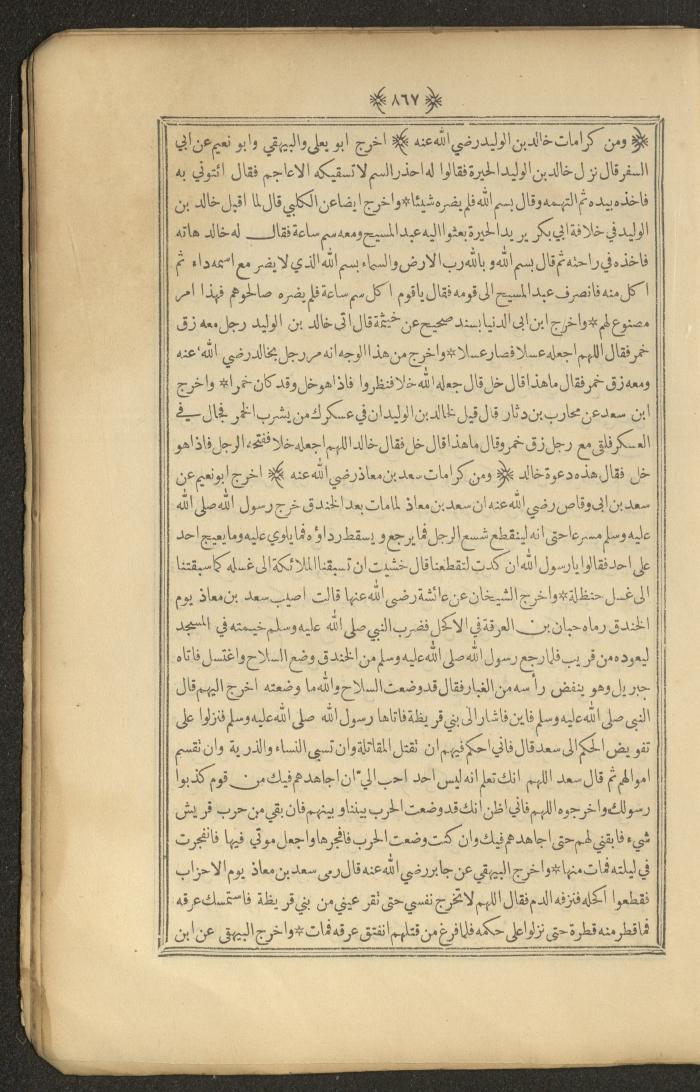 ﴿٨٦٧﴾
﴿ ومن كرامات خالد بن الوليد رضي الله عنه ﴾ اخرج ابو يعلى والبيهقي وابو نعيم عن ابي
السفر قال نزل خالد بن الوليد الحيرة فقالوا له احذر السم لا تسقيكه الاعاجم فقال ائتوني به
فاخذه بيده ثم التهمه وقال بسم الله فلم يضره شيئا * واخرج ايضا عن الكلبي قال لما اقبل خالد بن
الوليد في خلافة ابي بكر يريد الحيرة بعثوا اليه عبد المسيح ومعه سم ساعة فقال له خالد هاته
فاخذه في راحته ثم قال بسم الله وبالله رب الارض والسماء بسم الله الذي لا يضر مع اسمه داء ثم
اكل منه فانصرف عبد المسيح الى قومه فقال يا قوم اكل سم ساعة فلم يضره صالحوهم فهذا امر
مصنوع لهم * واخرج ابن ابي الدنيا بسند صحيح عن خيثمة قال اتى خالد بن الوليد رجل معه زق
خمر فقال اللهم اجعله عسلا فصار عسلا * واخرج من هذا الوجه انه مر رجل بخالد رضي الله عنه
ومعه زق خمر فقال ما هذا قال خل قال جعله الله خلا فنظروا فاذا هو خل وقد كان خمرا * واخرج
ابن سعد عن محارب بن دثار قال قيل لخالد بن الوليد ان في عسكرك من يشرب الخمر فجال في
العسكر فلقي مع رجل زق خمر وقال ما هذا قال خل فقال خالد اللهم اجعله خلا ففتحه الرجل فاذا هو
خل فقال هذه دعوة خالد ﴿ ومن كرامات سعد بن معاذ رضي الله عنه ﴾ اخرج ابو نعيم عن
سعد بن ابي وقاص رضي الله عنه ان سعد بن معاذ لما مات بعد الخندق خرج رسول الله صلى الله
عليه وسلم مسرعا حتى انه لينقطع شسع الرجل فما يرجع و يسقط رداؤه فما يلوي عليه وما يعيج احد
على احد فقالوا يا رسول الله ان كدت لتقطعنا قال خشيت ان تسبقنا الملائكة الى غسله كما سبقتنا
الى غسل حنظلة * واخرج الشيخان عن عائشة رضي الله عنها قالت اصيب سعد بن معاذ يوم
الخندق رماه حبان بن العرقة في الاكحل فضرب النبي صلى الله عليه وسلم خيمته في المسجد
ليعوده من قريب فلما رجع رسول الله صلى الله عليه وسلم من الخندق وضع السلاح واغتسل فاتاه
جبريل وهو ينفض رأسه من الغبار فقال قد وضعت السلاح والله ما وضعته اخرج اليهم قال
النبي صلى الله عليه وسلم فاين فاشار الى بني قريظة فاتاها رسول الله صلى الله عليه وسلم فنزلوا على
تفويض الحكم الى سعد قال فاني احكم فيهم ان تقتل المقاتلة وان تسبى النساء والذرية وان تقسم
اموالهم ثم قال سعد اللهم انك تعلم انه ليس احد احب اليّ ان اجاهدهم فيك من قوم كذبوا
رسولك واخرجوه اللهم فاني اظن انك قد وضعت الحرب بيننا وبينهم فان بقي من حرب قريش
شيء فابقني لهم حتى اجاهدهم فيك وان كنت وضعت الحرب فافجرها واجعل موتي فيها فانفجرت
في ليلته فمات منها * واخرج البيهقي عن جابر رضي الله عنه قال رمى سعد بن معاذ يوم الاحزاب
فقطعوا اكحله فنزفه الدم فقال اللهم لا تخرج نفسي حتى تقر عيني من بني قريظة فاستمسك عرقه
فما قطر منه قطرة حتى نزلوا على حكمه فلما فرغ من قتلهم انفتق عرقه فمات * واخرج البيهقي عن ابن